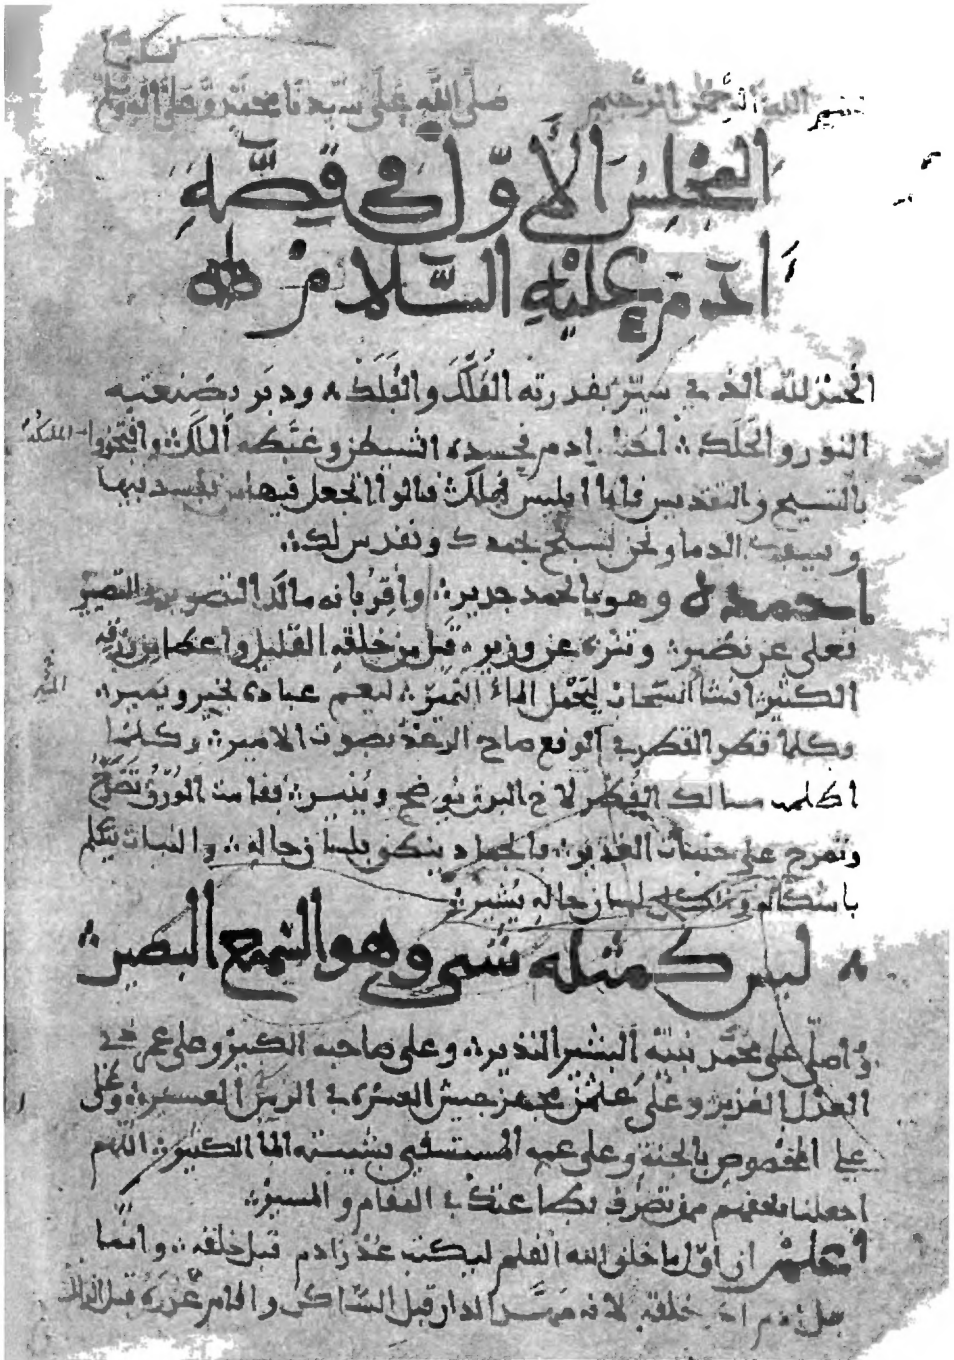 بسم الله الرحمن الرحيم صلى الله على سيدنا محمد وعلى اله
المجلس الأول في قصة
ءادم عليه السلام
الحمد لله الذي سير بقدرته الفُلك والفَلَك ودبر بصنعته
النور والحلك اختار ادم فحسده الشيطن وغبطه الملك وافتخروا الملئكة
بالتسبيح والتقديس فاما ابليس فهلك قالوا اتجعل فيها من يفسد فيها
ويسفك الدما ونحن نسبح بحمدك ونقدس لك
احمده وهو بالحمد جدير واقر بانه مالك التصوير والتصيير
تعلى عن نضير وتنزه عن وزير قبل من خلقه القليل واعطا من رزقه
الكثير انشا السحاب يحمل الماء النمير ليعم عباده بخير ويمير
وكلما قطر القطر في الوقع صاح الرعد بصوت الامير وكلما
اظلمت مسالك القطر لاح البرق يوضح وينير فقامت الورق تصدح
وتمرح على جنبات الغدير فالجماد ينطق بلسان حاله والنبات يتكلم
باشكاله لسان حاله يشير
ليس كمثله شي وهو السميع البصير
واصلي على محمد نبيه البشير النذير وعلى صاحبه الكبير وعلى عمر في
العدل العزيز وعلى عثمن مجهز جيش العسرة في الزمن العسير وعلى
علي المخصوص بالجنة وعلى عمه المستسقى بشيبته الما الكثير اللهم
اجعلنا بحقهم ممن تصرف بطاعتك في المقام والمسير
اعلم ان اول ما خلق الله القلم ليكتب عذر ادم قبل خلقه وانما
خلقه لانه مهد الدار قبل الساكن واقام عذره قبل الزلل